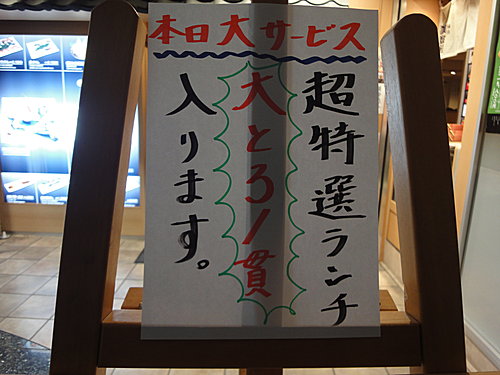 本日大サービス
超特選ランチ
大とろ1貫
入ります。